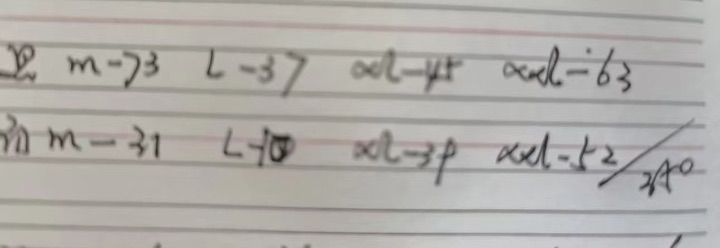 m-73 L-37 xl-45 xxl-63
m-31 L-10 xl-39 xxl-52/350